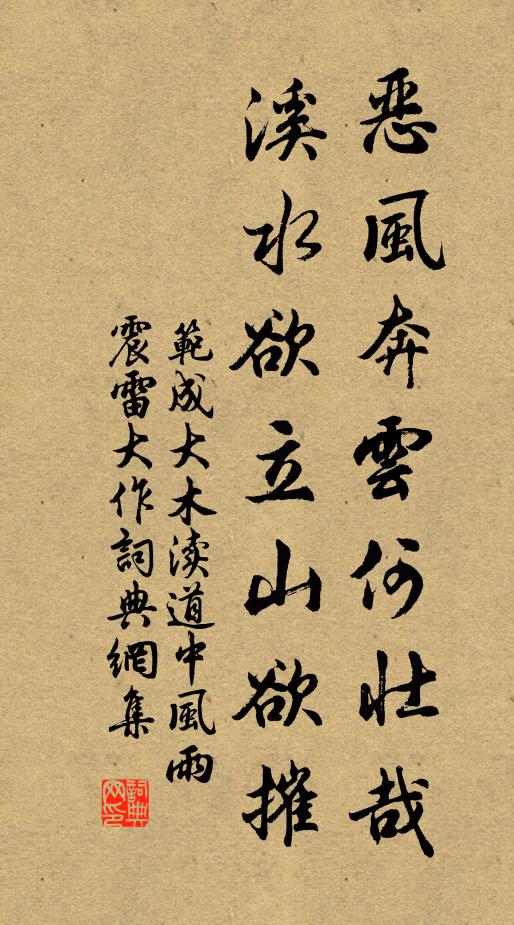 惡風奔雲何壯哉
溪水欲立山欲摧
範成大木渎道中風雨
震雷大作詞典網集
詞典网印